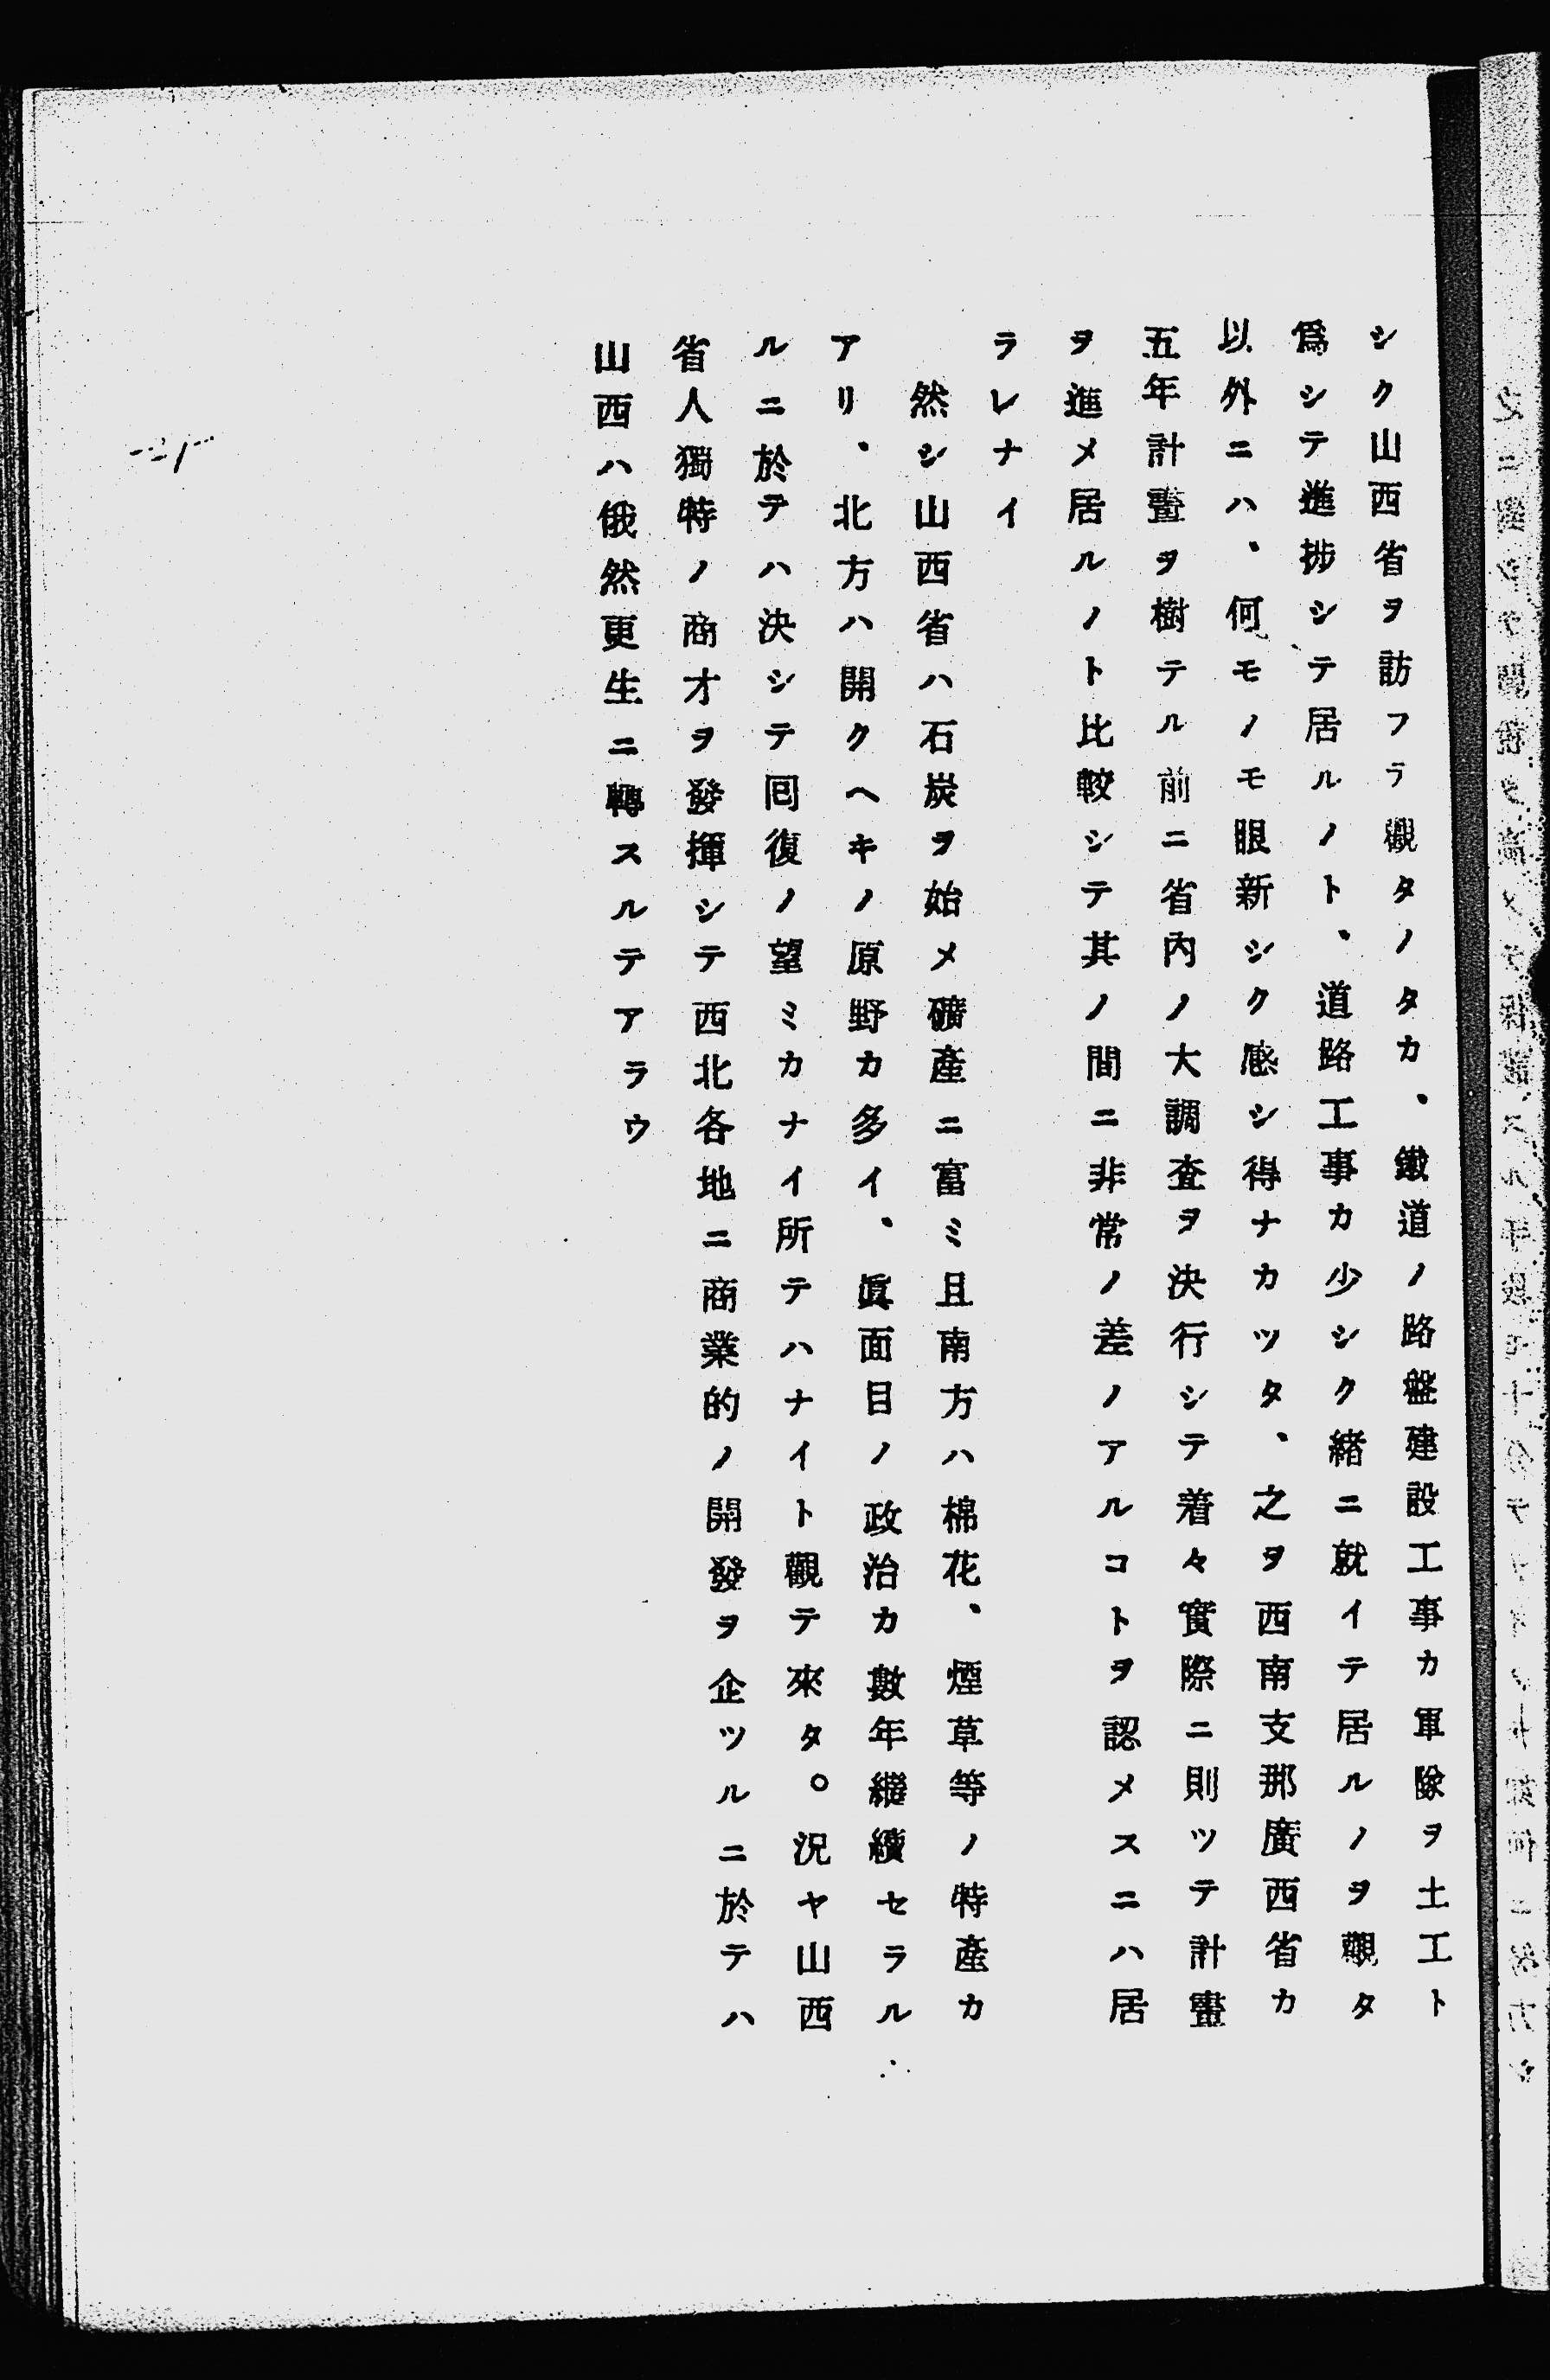 シク山西省ヲ訪フラ觀タノタカ、鐵道ノ路盤建設工事カ軍隊ヲ土工ト
爲シテ進捗シテ居ルノト、道路工事カ少シク緒ニ就イテ居ルノヲ觀タ
以外ニハ、何モノモ眼新シク感シ得ナカツタ、之ヲ西南支那廣西省カ
五年計畫ヲ樹テル前ニ省內ノ大調査ヲ決行シテ着々實際ニ則ツテ計畫
ヲ進メ居ルノト比較シテ其ノ間ニ非常ノ差ノアルコトヲ認メスニハ居
ラレナイ
然シ山西省ハ石炭ヲ始メ礦產ニ富ミ且南方ハ棉花、煙草等ノ特產カ
アリ、北方ハ開クヘキノ原野カ多イ、眞面目ノ政治カ數年繼續セラル
ルニ於テハ決シテ囘復ノ望ミカナイ所テハナイト觀テ來タ。況ヤ山西
省人獨特ノ商才ヲ發揮シテ西北各地ニ商業的ノ開發ヲ企ツルニ於テハ
山西ハ俄然更生ニ轉スルテアラウ